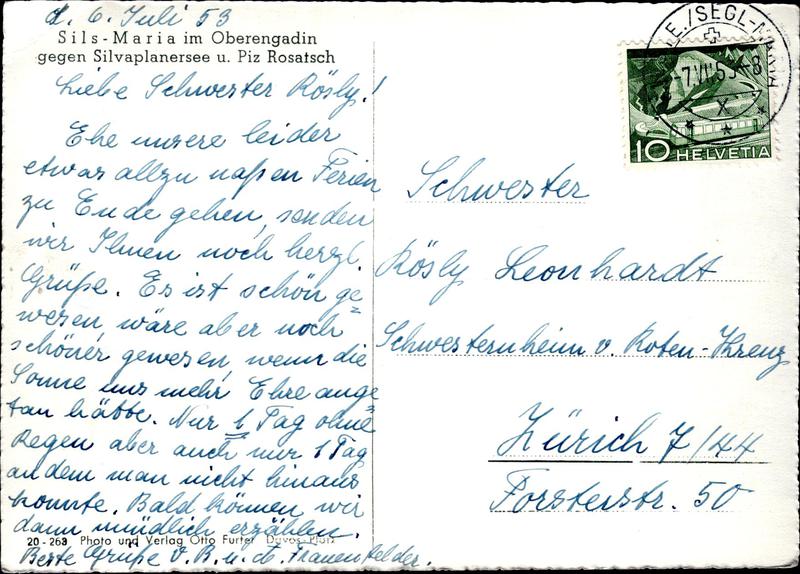 d. 6. Juli 53
Sils-Maria im Oberengadin
gegen Silvaplanersee u. Piz Rosatsch
Liebe Schwester Rösly!
Ehe unsere leider
etwas allzu naßen Ferien
zu Ende gehen, senden
wir Ihnen noch herzl.
Grüße. Es ist schön ge=
wesen, wäre aber noch
schöner gewesen, wenn die
Sonne uns mehr Ehre ange=
tan hätte. Nur 1 Tag ohne
Regen aber auch nur 1 Tag
an dem man nicht hinaus
konnte. Bald können wir
dann mündlich erzählen.
20-263 Photo und Verlag Otto Furter Davos-Platz
Beste Grüße v. B. u. d. Frauenfelder.
SEGL-MARIA
-7.VII.53-8
X
10 HELVETIA
Schwester
Rösly Leonhardt
Schwesternheim v. Roten-Kreuz
Zürich 7/44
Forsterstr. 50